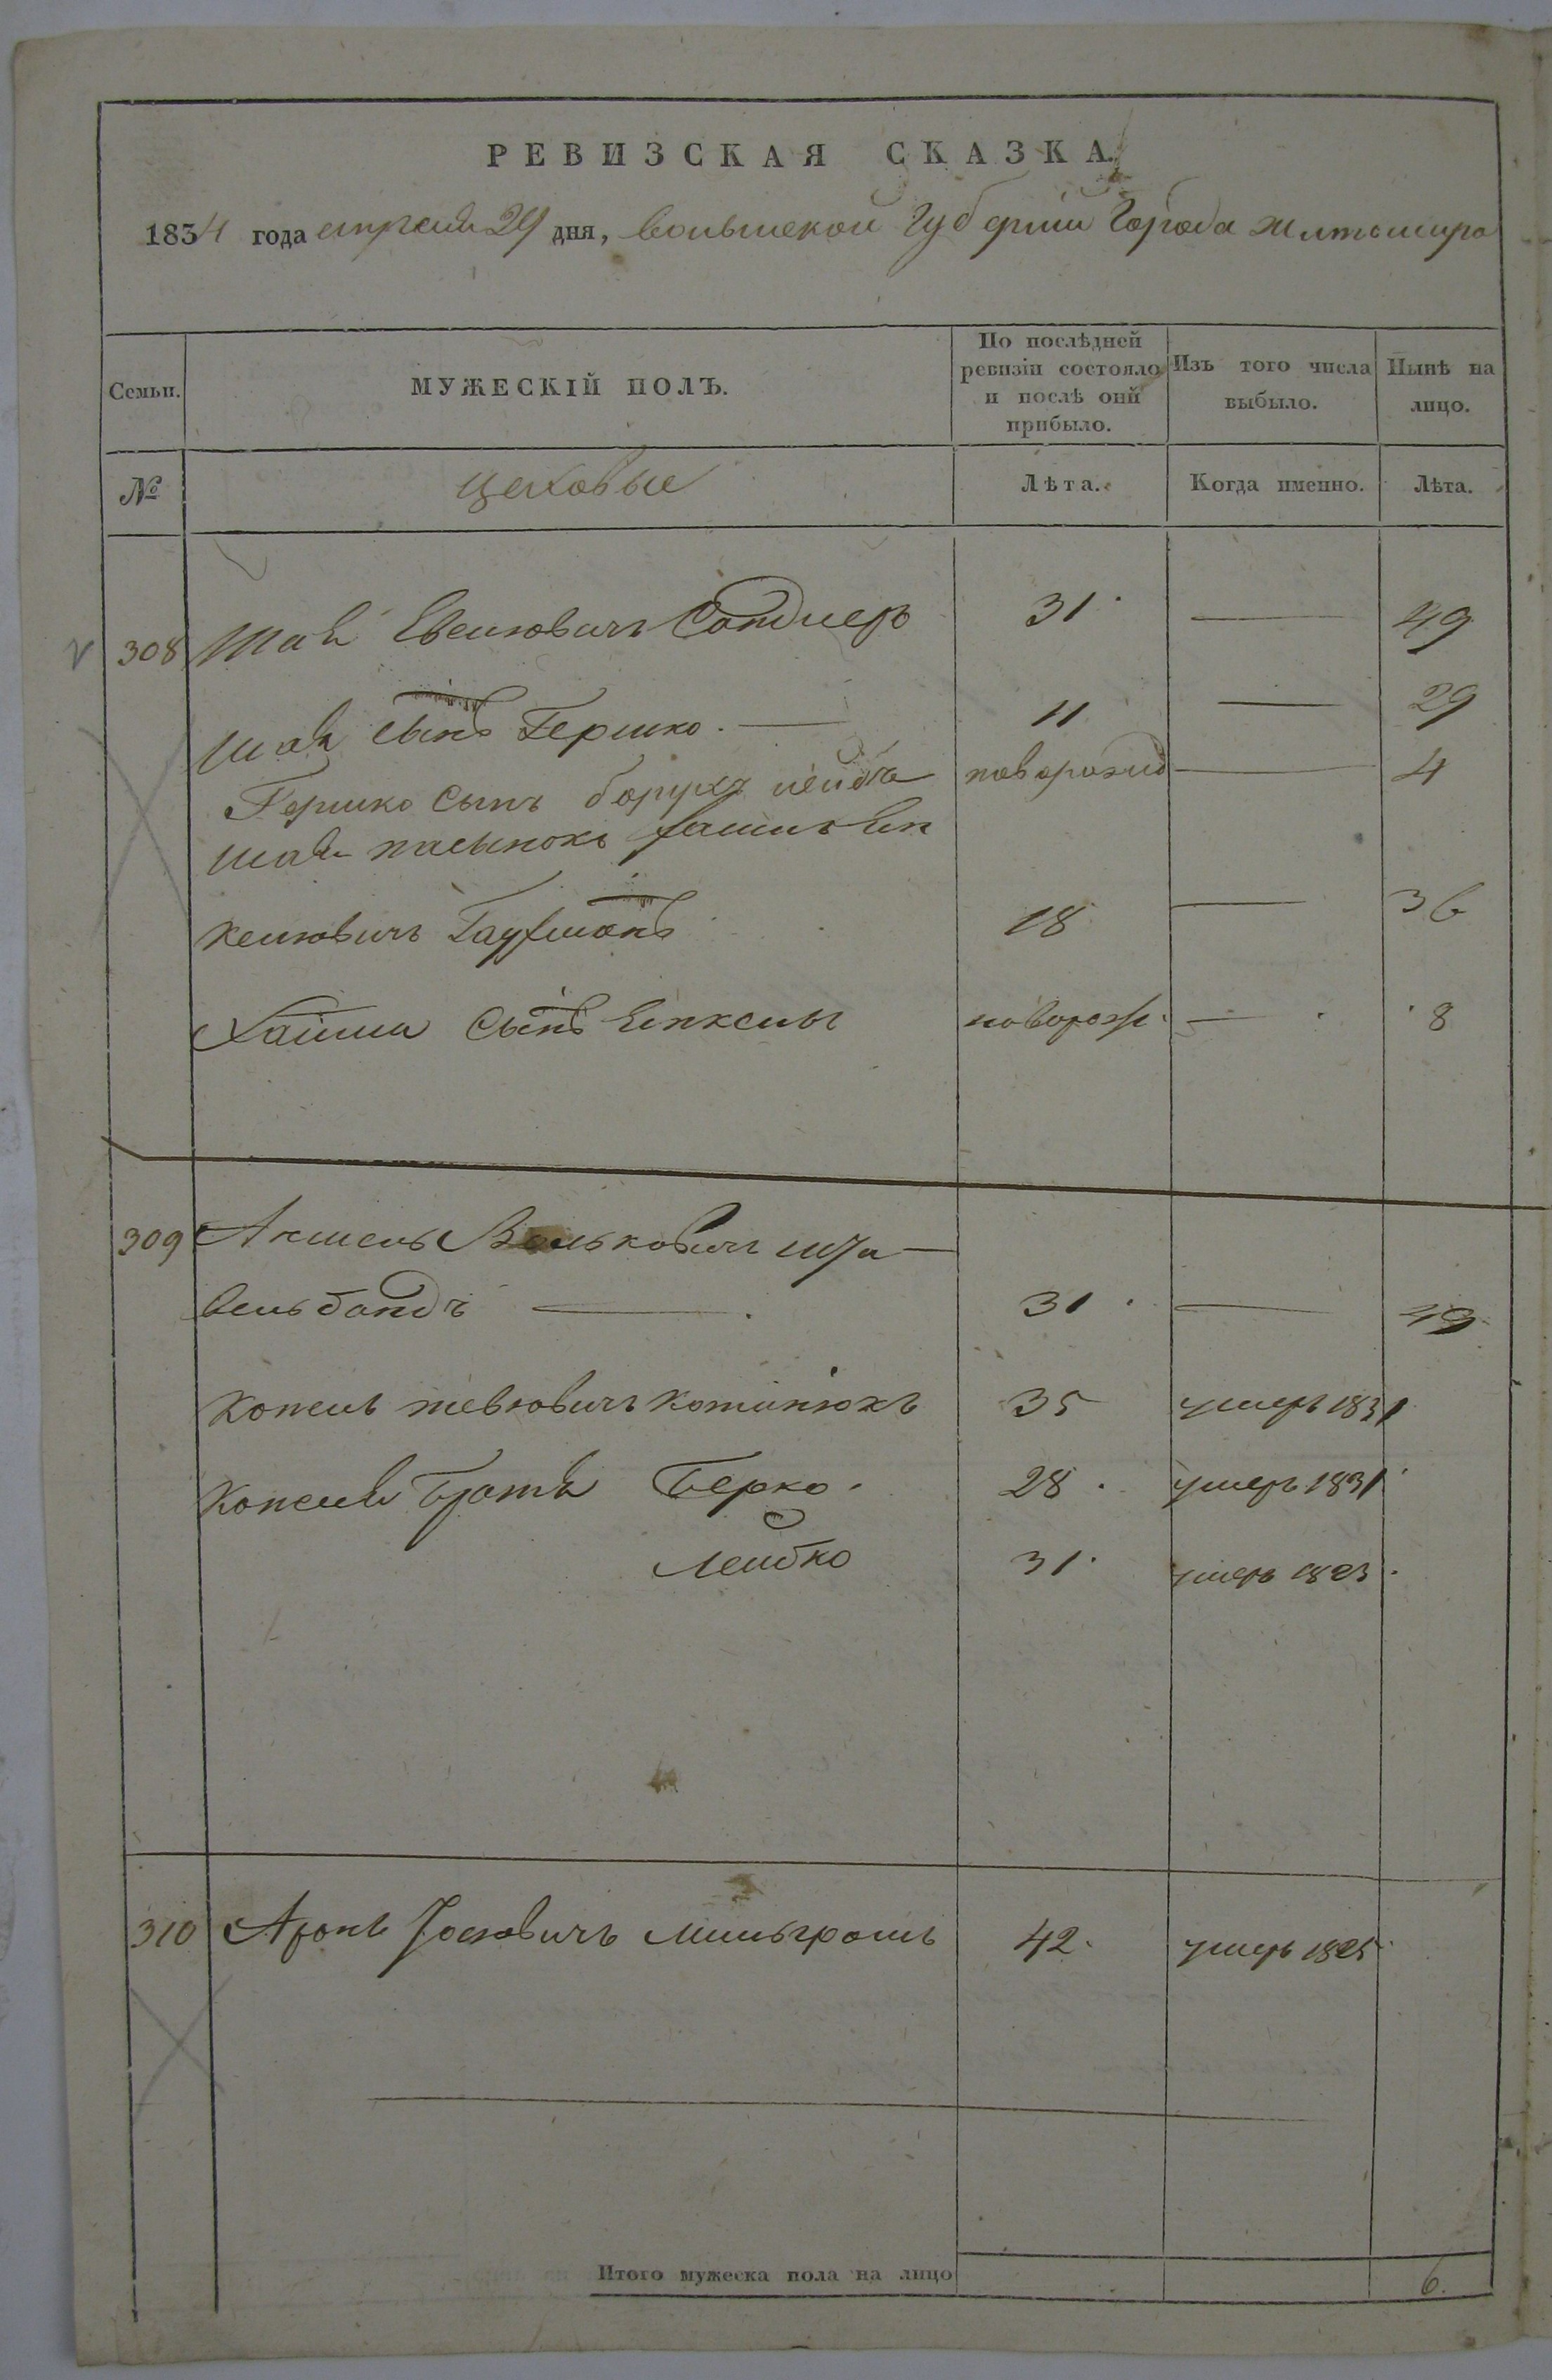 РЕВИЗСКАЯ СКАЗКА.
1834 года апреля 29 дня, волынской Губернии Города Житомира
Семьи. МУЖЕСКІЙ ПОЛЪ. По послѣдней ревизіи состояло и послѣ оній прибыло. Изъ того числа выбыло. Нынѣ на лицо.
№ цеховые Лѣта. Когда именно. Лѣта.
308 Шая 31 — 49
Шаи сынъ Гершко. — 11 — 29
Гершко сынъ борухъ лейба новорожд — 4
Шаи пасынокъ
Гауфманъ 18 — 36
Хаима сынъ новорож. — 8
309 Вольковичъ
31. — 49
Копель тевювичъ 35 умеръ 1831
Копеля братья Берко. 28. умеръ 1831
Лейбко 31. умеръ 1823.
310 Аронъ Іосювичъ Мильгромъ 42. умеръ 1825
Итого мужеска пола на лицо 6.